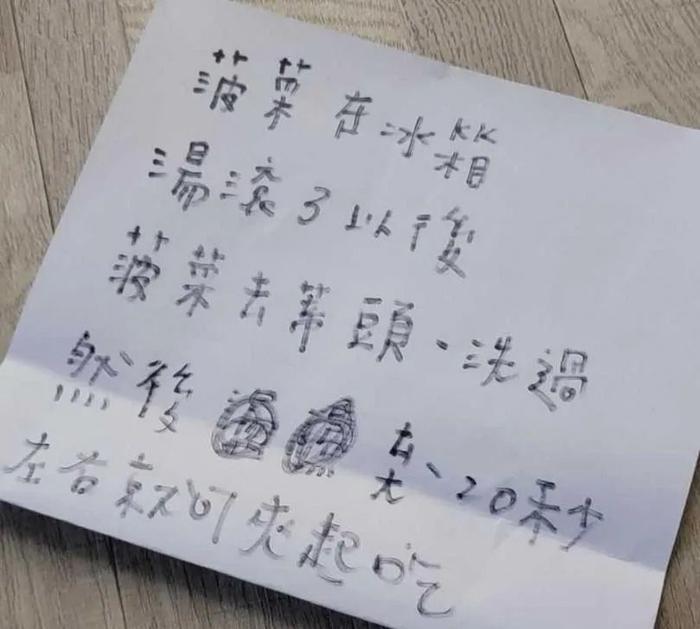 菠菜在冰箱
湯滾了以後
菠菜去蒂頭、洗過
然後 、20秒
左右就可夾起吃